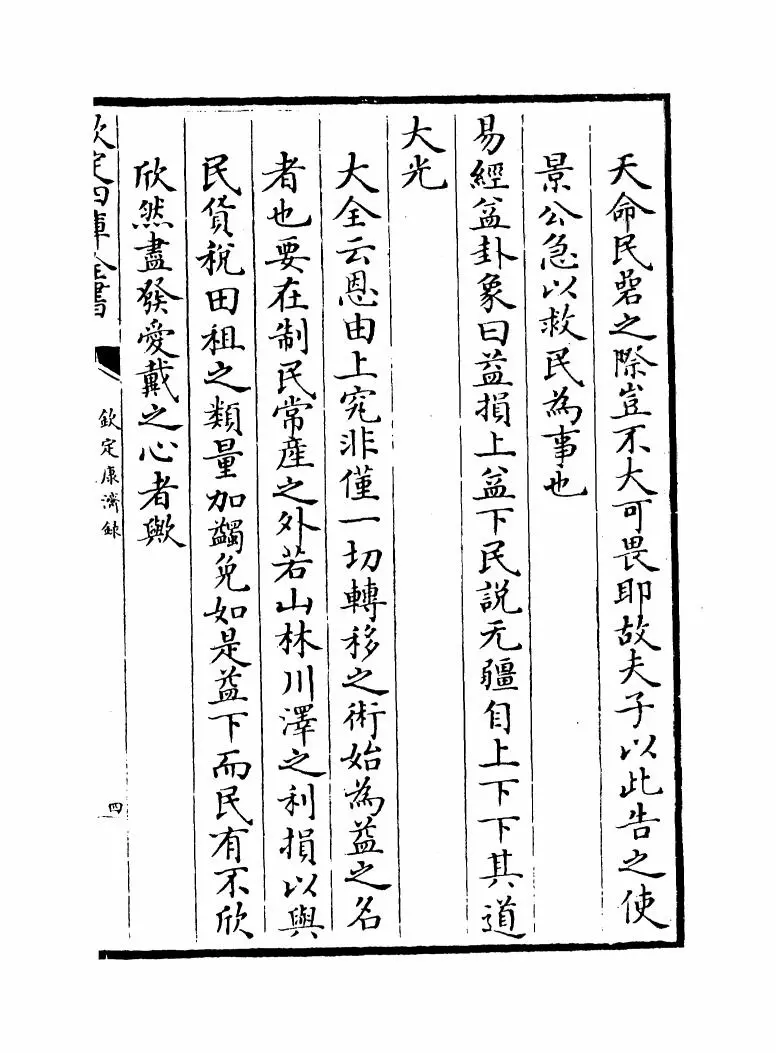 天命民碞之際豈不大可畏耶故夫子以此告之使
景公急以救民為事也
易經益卦彖曰益損上益下民説无疆自上下下其道
大光
大全云恩由上究非僅一切轉移之術始為益之名
者也要在制民常産之外若山林川澤之利損以與
民貨税田租之類量加蠲免如是益下而民有不欣
欣然盡發愛戴之心者歟
欽定四庫全書
欽定康濟録
四